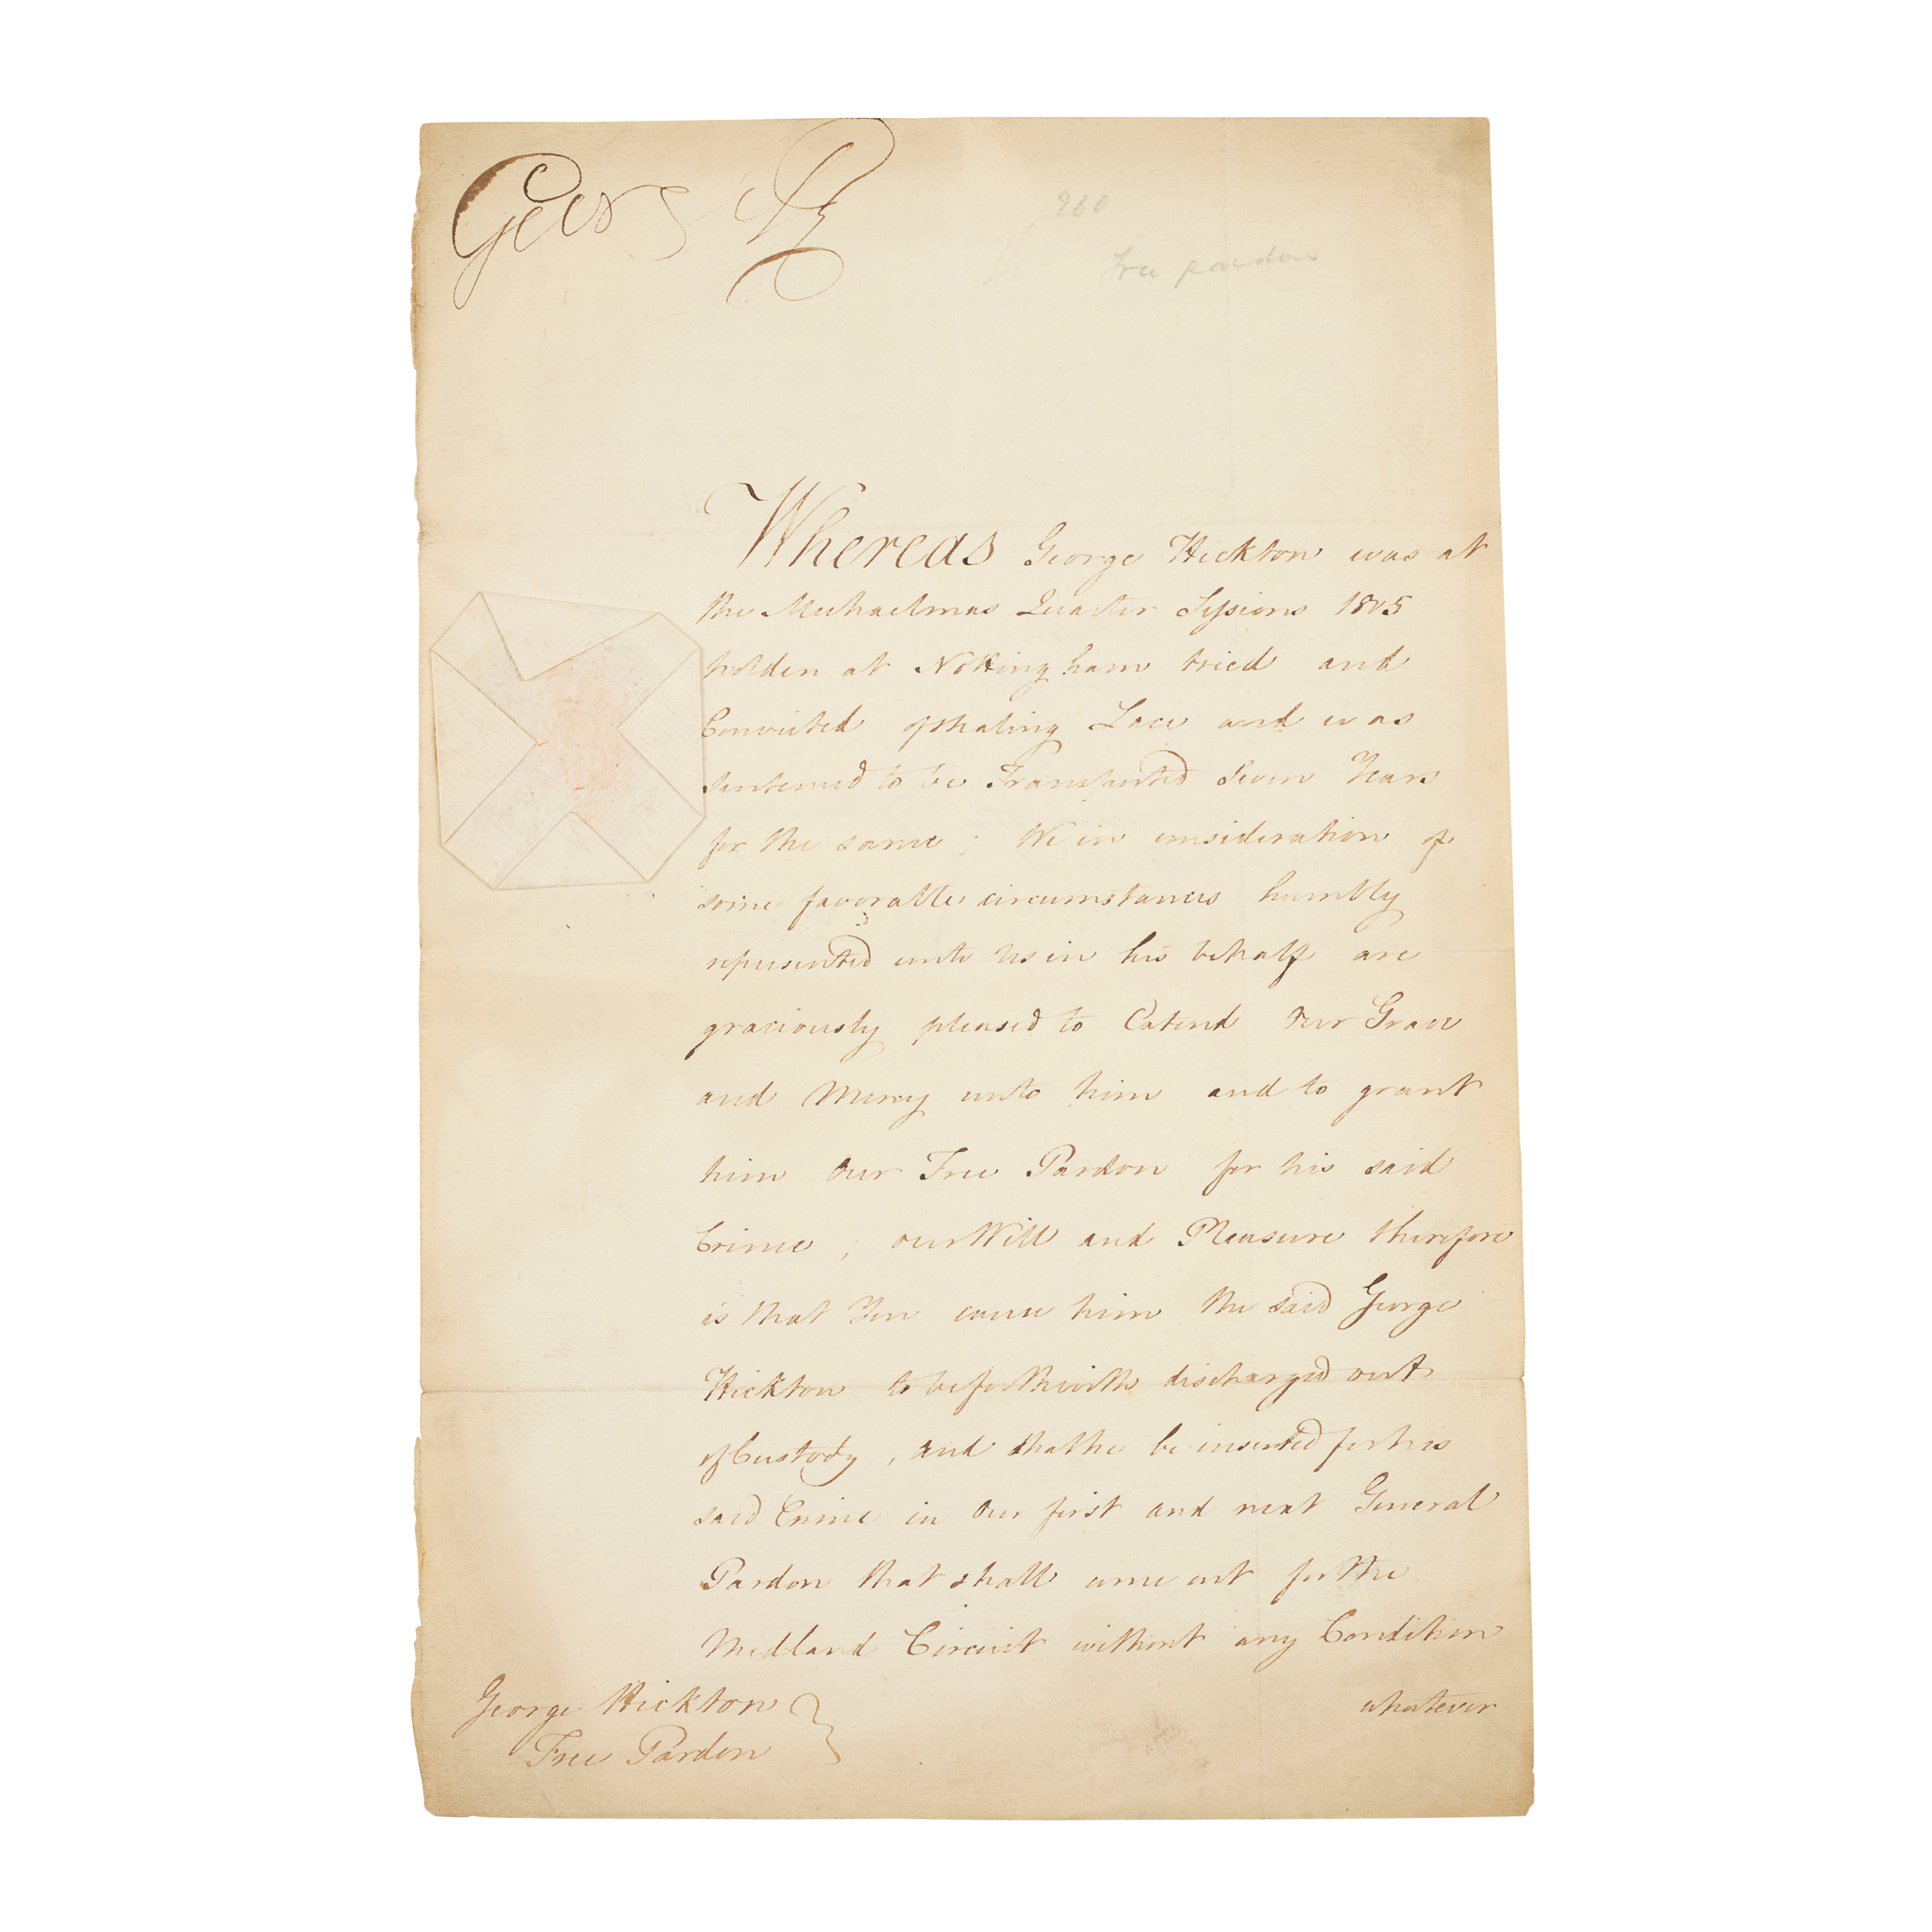 George R
260
free pardon
Whereas George Hickton was at
the Michaelmas Quarter Sessions 1805
holden at Nottingham tried and
Convicted of stealing Lace and was
sentenced to be Transported Seven Years
for the same; We in consideration of
some favorable circumstances humbly
represented unto Us in his behalf are
graciously pleased to Extend Our Grace
and Mercy unto him and to grant
him Our Free Pardon for his said
Crime; our Will and Pleasure therefore
is that You cause him the said George
Hickton to be forthwith discharged out
of Custody, and that he be inserted for his
said Crime in Our first and next General
Pardon that shall come out for the
Midland Circuit without any Condition
whatever
George Hickton
Free Pardon